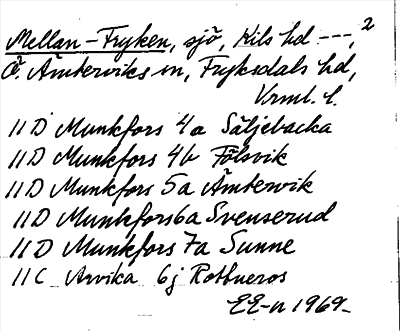 2
Mellan-Fryken, sjö, Kils hd ---,
Ö. Ämterviks sn, Fryksdals hd,
Vrml. l.
11 D Munkfors 4a Säljebacka
11 D Munkfors 4b Fölsvik
11 D Munkfors 5a Ämtervik
11 D Munkfors 6a Svenserud
11 D Munkfors 7a Sunne
11 C Arvika 6j Rottneros
EE-n 1969-